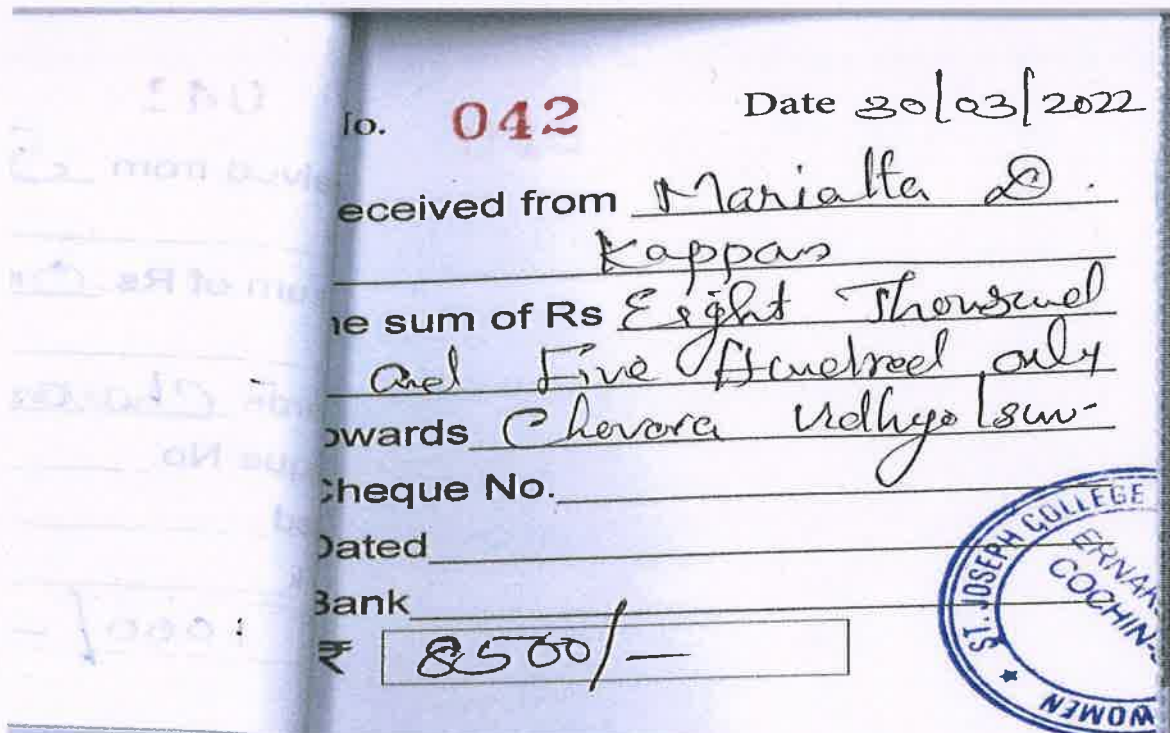 lo. 042 Date 30/03/2022
eceived from Marialta D.
Kappan
he sum of Rs Eight Thousand
and Five Hundred only
owards Chavara
Cheque No.
Dated
Bank
₹ 8500/-
ST. JOSEPH COLLEGE
WOMEN
ERNAK
COCHIN-